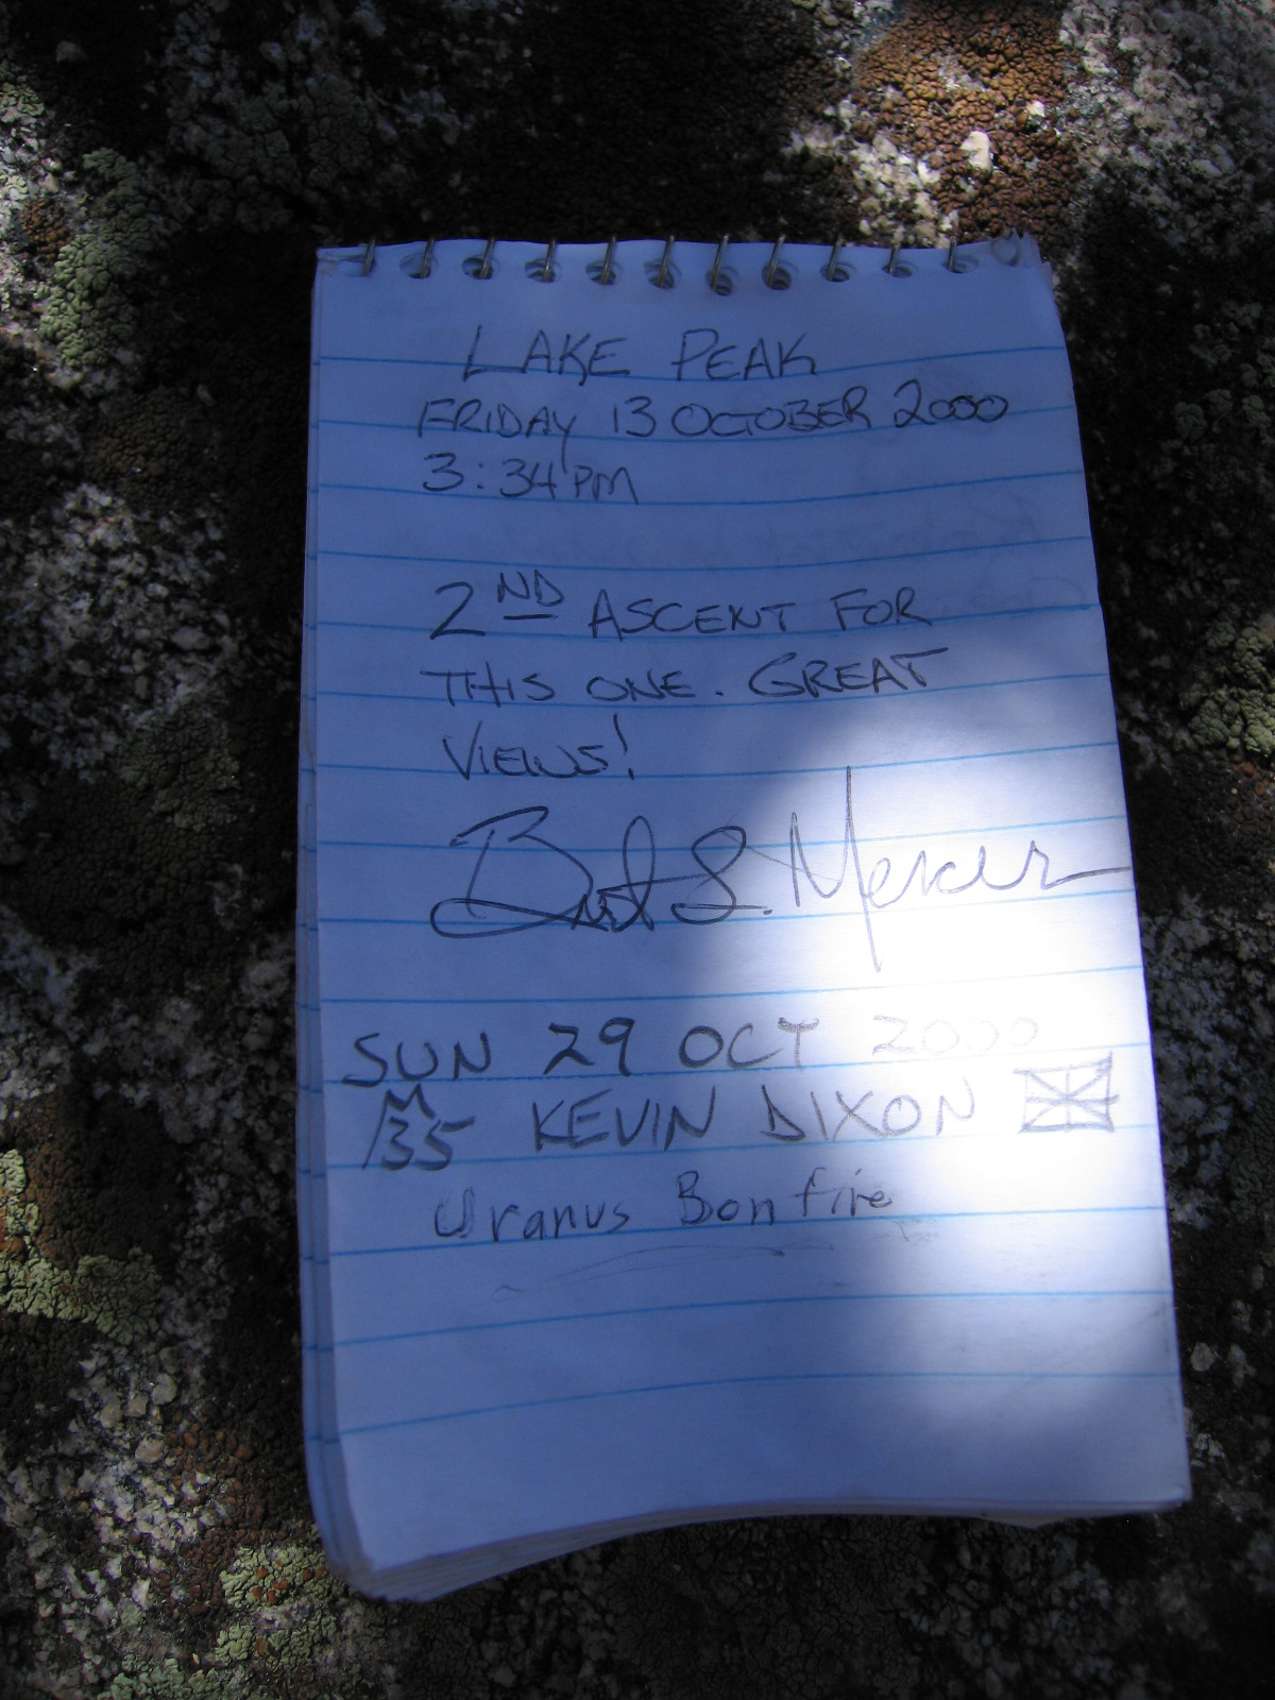 LAKE PEAK
FRIDAY 13 OCTOBER 2000
3:34 PM
2ND ASCENT FOR
THIS ONE. GREAT
VIEWS!
S. Mercer
SUN 29 OCT 2000
KEVIN DIXON
Uranus Bonfire